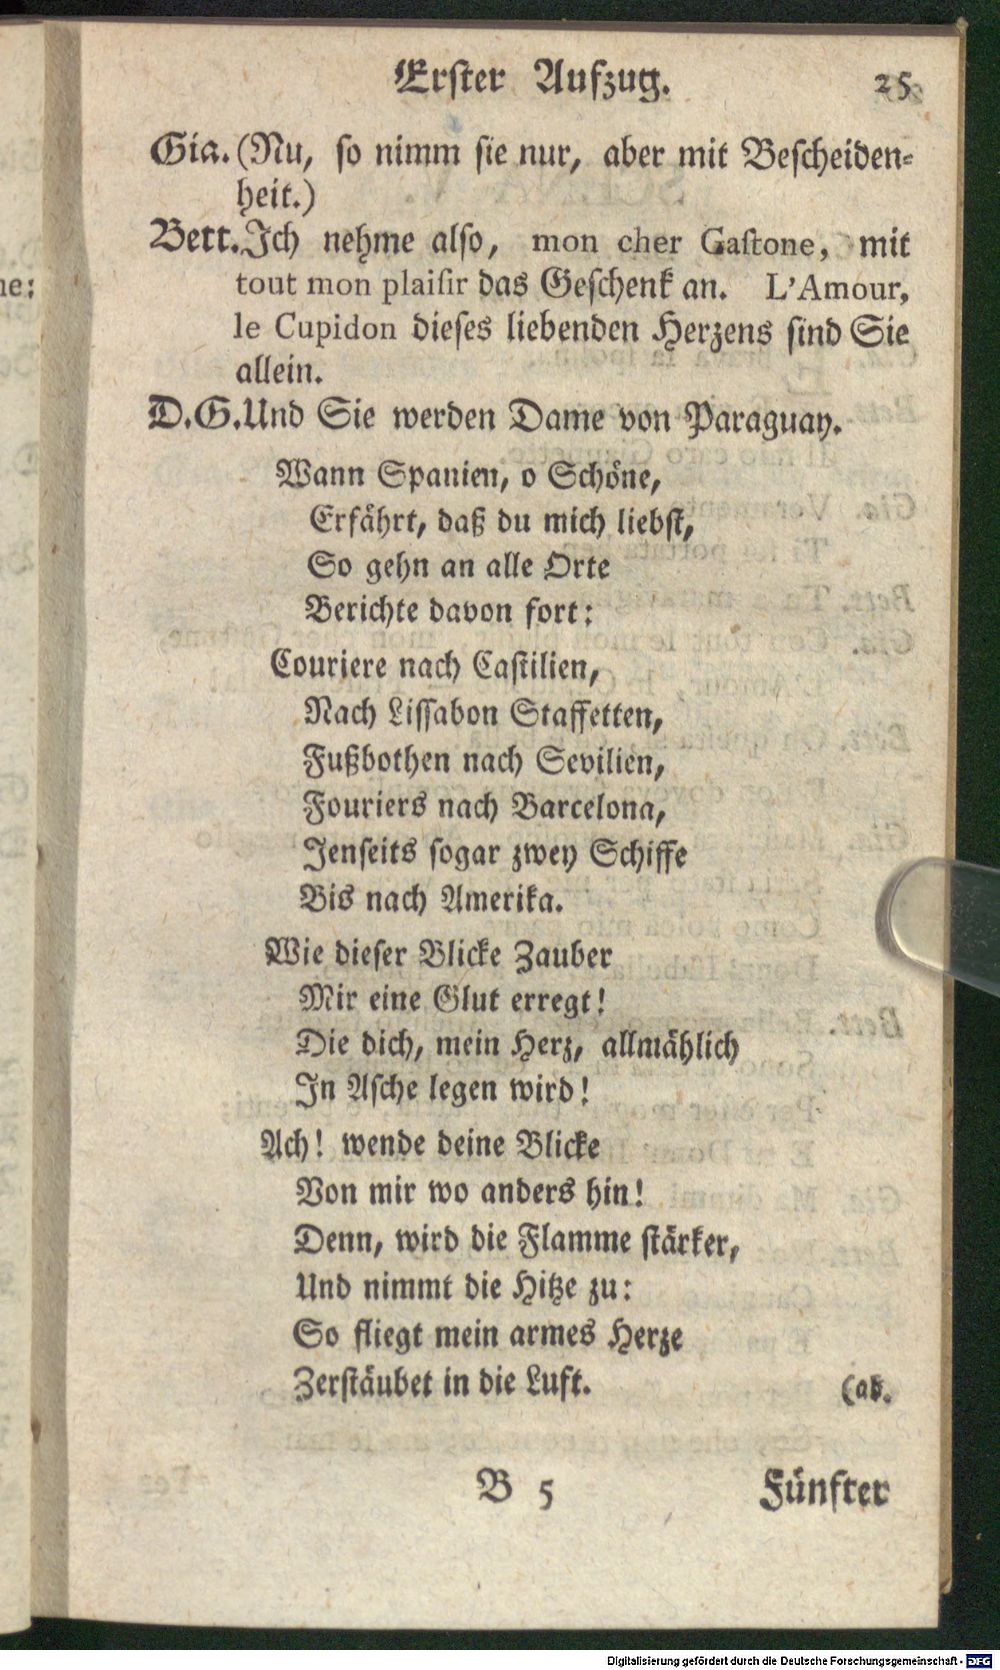 Erster Aufzug. 25
Gia. (Nu, so nimm sie nur, aber mit Bescheiden-
heit.)
Bett. Ich nehme also, mon cher Gastone, mit
tout mon plaisir das Geschenk an. L'Amour,
le Cupidon dieses liebenden Herzens sind Sie
allein.
D.G. Und Sie werden Dame von Paraguay.
Wann Spanien, o Schöne,
Erfährt, daß du mich liebst,
So gehn an alle Orte
Berichte davon fort:
Couriere nach Castilien,
Nach Lissabon Staffetten,
Fußbothen nach Sevilien,
Fouriers nach Barcelona,
Jenseits sogar zwey Schiffe
Bis nach Amerika.
Wie dieser Blicke Zauber
Mir eine Glut erregt!
Die dich, mein Herz, allmählich
In Asche legen wird!
Ach! wende deine Blicke
Von mir wo anders hin!
Denn, wird die Flamme stärker,
Und nimmt die Hitze zu:
So fliegt mein armes Herze
Zerstäubet in die Luft. (ab.
B 5 Fünfter
Digitalisierung gefördert durch die Deutsche Forschungsgemeinschaft - DFG